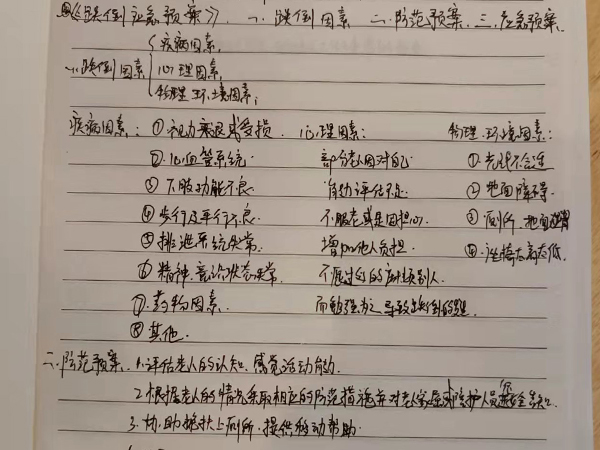 《跌倒应急预案》, 一、跌倒因素 二、防范预案, 三、应急预案.
疾病因素,
一、跌倒因素 心理因素,
物理环境因素;
疾病因素: ①视力衰退或受损. 心理因素: 物理、环境因素:
②心血管系统 部分老人因对自己 ①光线不合适
③下肢功能不良 自动评估不足 ②地面障碍
④步行及平行不良 不服老或是因担心 ③厕所、地面
⑤排泄系统失常 增加他人负担 ④座椅太高太低
⑥精神、意识状态失常 不愿过多的麻烦别人
⑦药物因素 而勉强为之导致跌倒的
⑧其他.
二、防范预案. 1.评估老人的认知、感觉活动能力.
2.根据老人的情况采取相应的防范措施并对老人家属或陪护人员安全告知.
3.协助搀扶上厕所、提供移动帮助